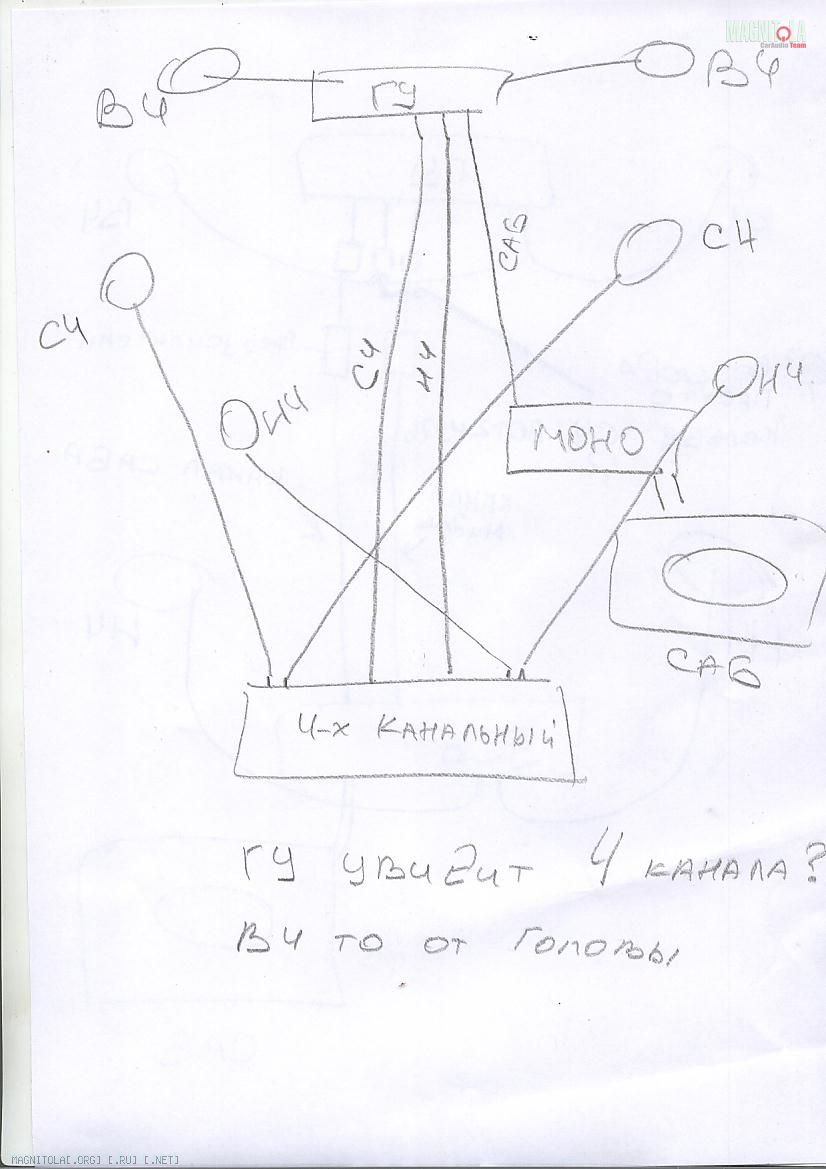 MAGNITOLA
CarAudio Team
ВЧ
ГУ
ВЧ
САБ
СЧ
СЧ
СЧ
НЧ
НЧ
НЧ
МОНО
САБ
4-х КАНАЛЬНЫЙ
ГУ УВИДИТ 4 КАНАЛА?
ВЧ ТО ОТ ГОЛОВЫ
MAGNITOLA[.ORG] [.RU] [.NET]